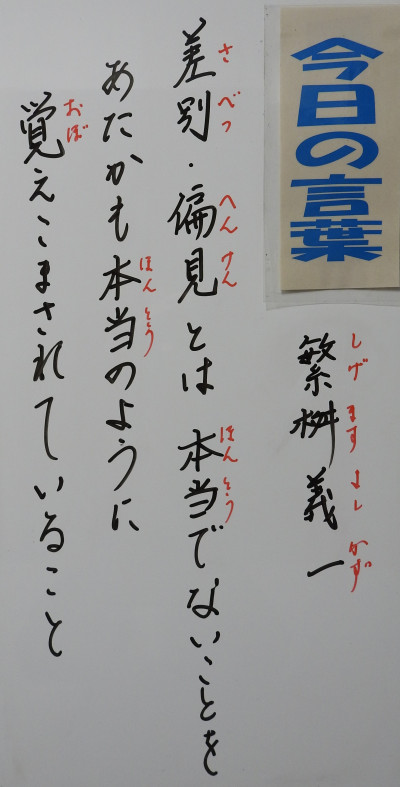 今日の言葉
繁桝義一
しげますよしかず
差別・偏見とは 本当でないことを
さべつ へんけん ほんとう
あたかも本当のように
ほんとう
覚えこまされていること
おぼ